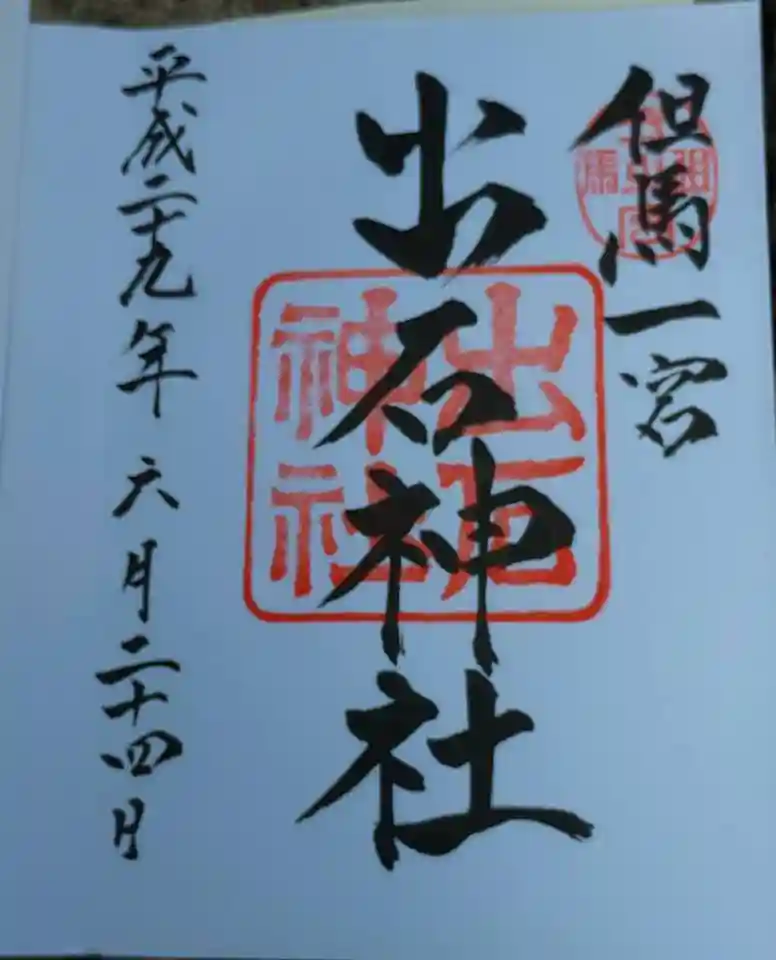 但馬一宮
出石神社
出石神社
平成二十九年 六月二十四日